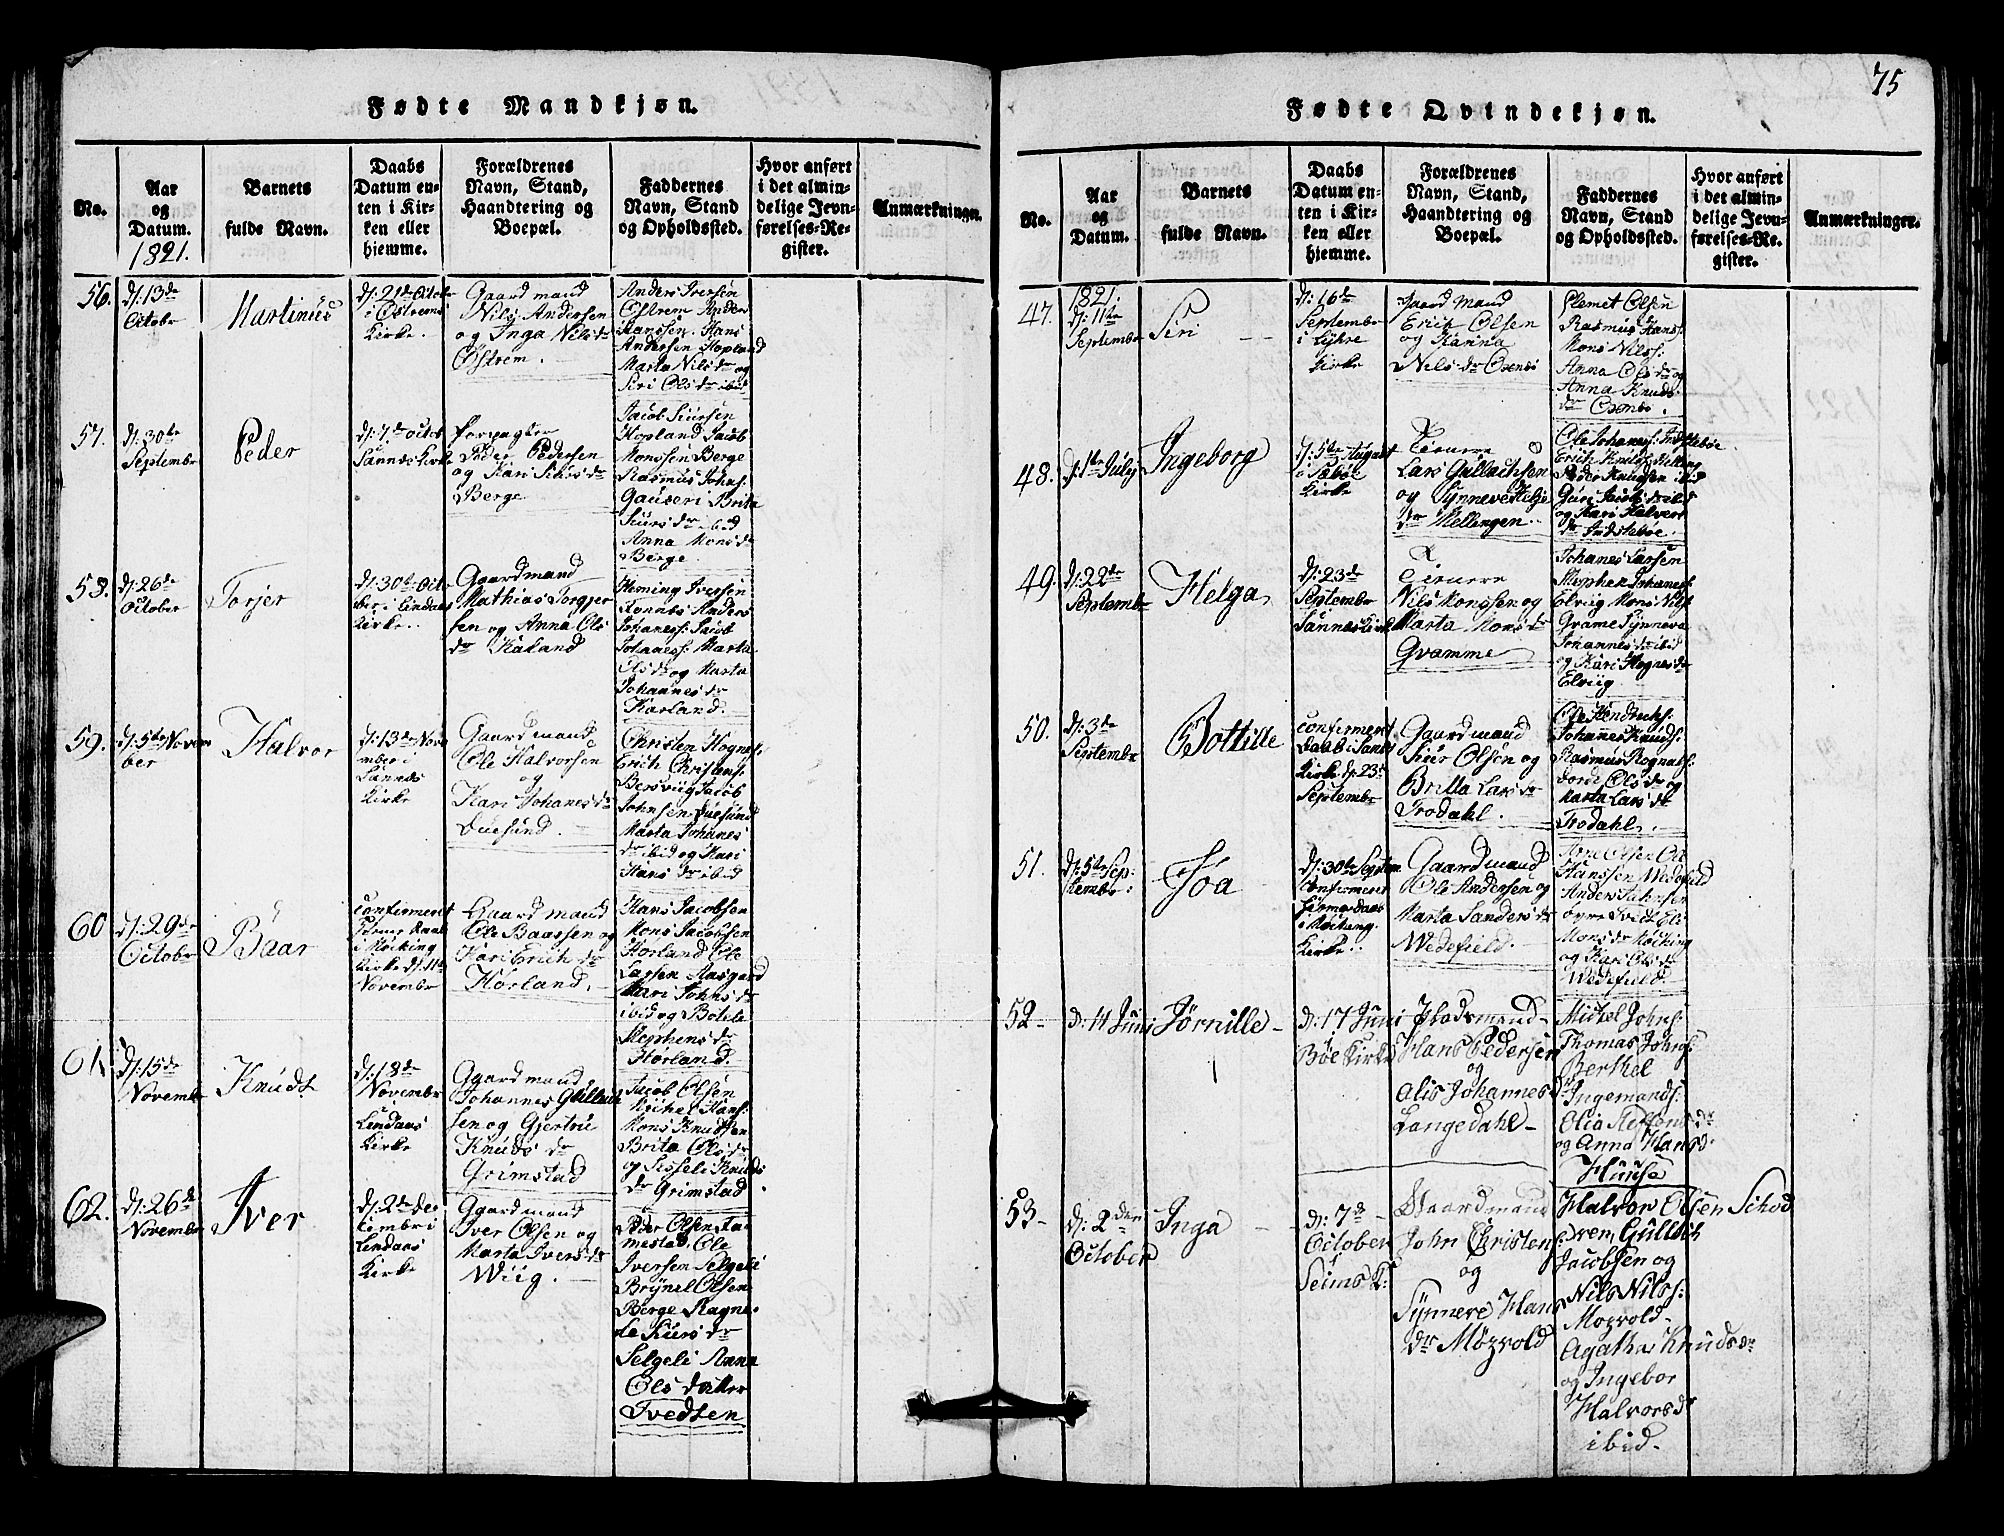 75
Fødte Mandkjøn.
No.
Aar
og
Datum.
1821.
Barnets
fulde Navn.
Daabs
Datum en-
ten i Kir-
ken eller
hjemme.
Forældrenes
Navn, Stand,
Haandtering og
Boepæl.
Faddernes
Navn, Stand
og Opholdssted.
Hvor anført
i det almin-
delige Jevn-
førelses-Re-
gister.
Anmærkninger.
56.
d: 13de
Octobr
Martinus
d: 21de Octobr
i Østrems
Kirke.
Gaardmand
Nils Andersen
og Inga Nilsdr
Østrem.
Anders Iversen
Østrem Anders
Hanssen Hans
Andersen Hopland
Marta Nilsdr og
Siri Olsdr ibid
57.
d: 30te
Septembr
Peder
d: 7de Octob
Sannes Kirke
Forpagter
Peder Pedersen
og Kari Siursdr
Berge
Jacob Siursen
Hopland Jacob
Monssen Berge
Rasmus Johns:
Brita
Siursdr ibid
Anna Monsdr
Berge.
58.
d: 26de
October
Torjer
d: 30te Octo
ber i Lindaas
Kirke..
Gaardmand
Mathias Torgjer
sen og Anna Ols
dr Kaland
Heming Iversen
Anders
Johaness: Jacob
Johaness: Marta
Olsdr og Marta
Johannesdr
Karland.
59.
d: 5te Novem
ber
Halvor
d: 13de Nove
mber i
Sannes
Kirke
Gaardmand
Ole Halvorsen
og
Kari Johanesdr
Duesund.
Christen Hognes:
Erich Christens:
Bersviig Jacob
Johnsen Duesund
Marta Johanes
dr ibid og Kari
Hansdr ibid
60
d: 29de
Octobr
Baar
confirmeret
hjemme daab
i Møcking
Kirke d: 11te
Novembr
Gaardmand
Ole Baarsen og
Kari Erichdr
Horland.
Hans Jacobsen
Mons Jacobsen
Horland Ole
Larsen Aasgard
Kari Johnsdr
ibid og Botele
Stephensdr
Horland.
61.
d: 15de
Novembr
Knudt
d: 18de
Novembr
Lindaas
Kirke
Gaardmand
Johannes Gullach
sen og Gjertru
Knudsdr
Grimstad
Jacob Olsen
Michel Hans:
Mons Knudsen
Brita Olsdr
og Sisseli Knuds
dr Grimstad.
62.
d: 26de
Novembr
Iver
d: 2de De
cembr i
Lindaas
Kirke
Gaardmand
Iver Olsen og
Marta Iversdr
Wiig.
Peder Olsen Ta
mestad, Ole
Iversen Selgeli
Brynel Olsen
Berge Ragne
le Siursdr
Selgeli Anna
Ols datter
Tvedten
Fødte Qvindekjøn.
No.
Aar
og
Datum.
Barnets
fulde Navn.
Daabs
Datum en-
ten i Kir-
ken eller
hjemme.
Forældrenes
Navn, Stand,
Haandtering og
Boepæl.
Faddernes
Navn, Stand
og Opholdssted.
Hvor anført
i det almin-
delige Jevn-
førelses-Re-
gister.
Anmærkninger.
47.
1821.
d: 11te
Septembr
Siri
d: 16de
Septembr
i Lyhre
Kirke
Gaardmand
Erich Olsen
og Hanna
Nilsdr Oxenbø
Clemet Olsen
Rasmus Hans:
Mons Nilss:
Anna Olsdr og
Anna Knuds
dr Oxenbø.
48.
d: 1te July
Ingeborg
d: 5te August
i Sæbøe
Kirke
Lars Gullachsen
og Synneve Helje
dr Mellingen..
Ole Johaness: Indstebøe
Erich Knuds: Mellingen
Peder Knudsen ibid
Guri Jacobsdr ibid
og Kari Halvors
dr Indstebøe.
49.
d: 22de
Septembr
Helga
d: 23de
Septembr
Sannes Kirke
Nils Monssen og
Marta Monsdr
Qvamme
Johanes Larsen
Stephen Johaness:
Elviig Mons Nils:
Qvame Synneva
Johannesdr ibid
og Kari Hognesdr
Elviig
50.
d: 3de
Septembr
Bottille
confirmeret
Daab i Sannes
Kirke d: 23de
Septembr
Gaardmand
Siur Olsen og
Britta Larsdr
Trodahl.
Ole Hendrichs:
Johannes Knuds:
Rasmus Rognals:
Dorde Olsdr og
Marta Larsdr
Trodahl.
51.
d: 5te Sep-
tembr:
Joa
d: 30te Septem
confirmeret
hjemmedaab
i Møcking
Kirke..
Gaardmand
Ole Andersen og
Marta Sandersdr
Wedefield.
Tore Olsen Ole
Hanssen Wedefield
Anders Johnsen
Eli
Monsdr Møcking
og Kari Olsdr
Wedefield.
52-
d: 14 Juni
Jørnille-
d: 17 Juni
Bøe Kirke
Pladsmand-
Hans Pedersen
og
Alis Johannesdr
Langedahl-
Michel Johns:
Thomas Johns:
Berthel
Ingemands:
Olia Steffensdr
og Anna Hansd:
Huuse
53-
d: 2den
October
Inga
d: 7d-
October
Seims K:
Gaardmand
John Christens:
og
Synneve Hans
dr Mozvold
Halvor Olsen Schod
vem, Gulleik
Jacobsen og
Nils Nilss:
Mozvold-
Agatha Knudsdr
og Ingebor
Halvorsdr
ibid.